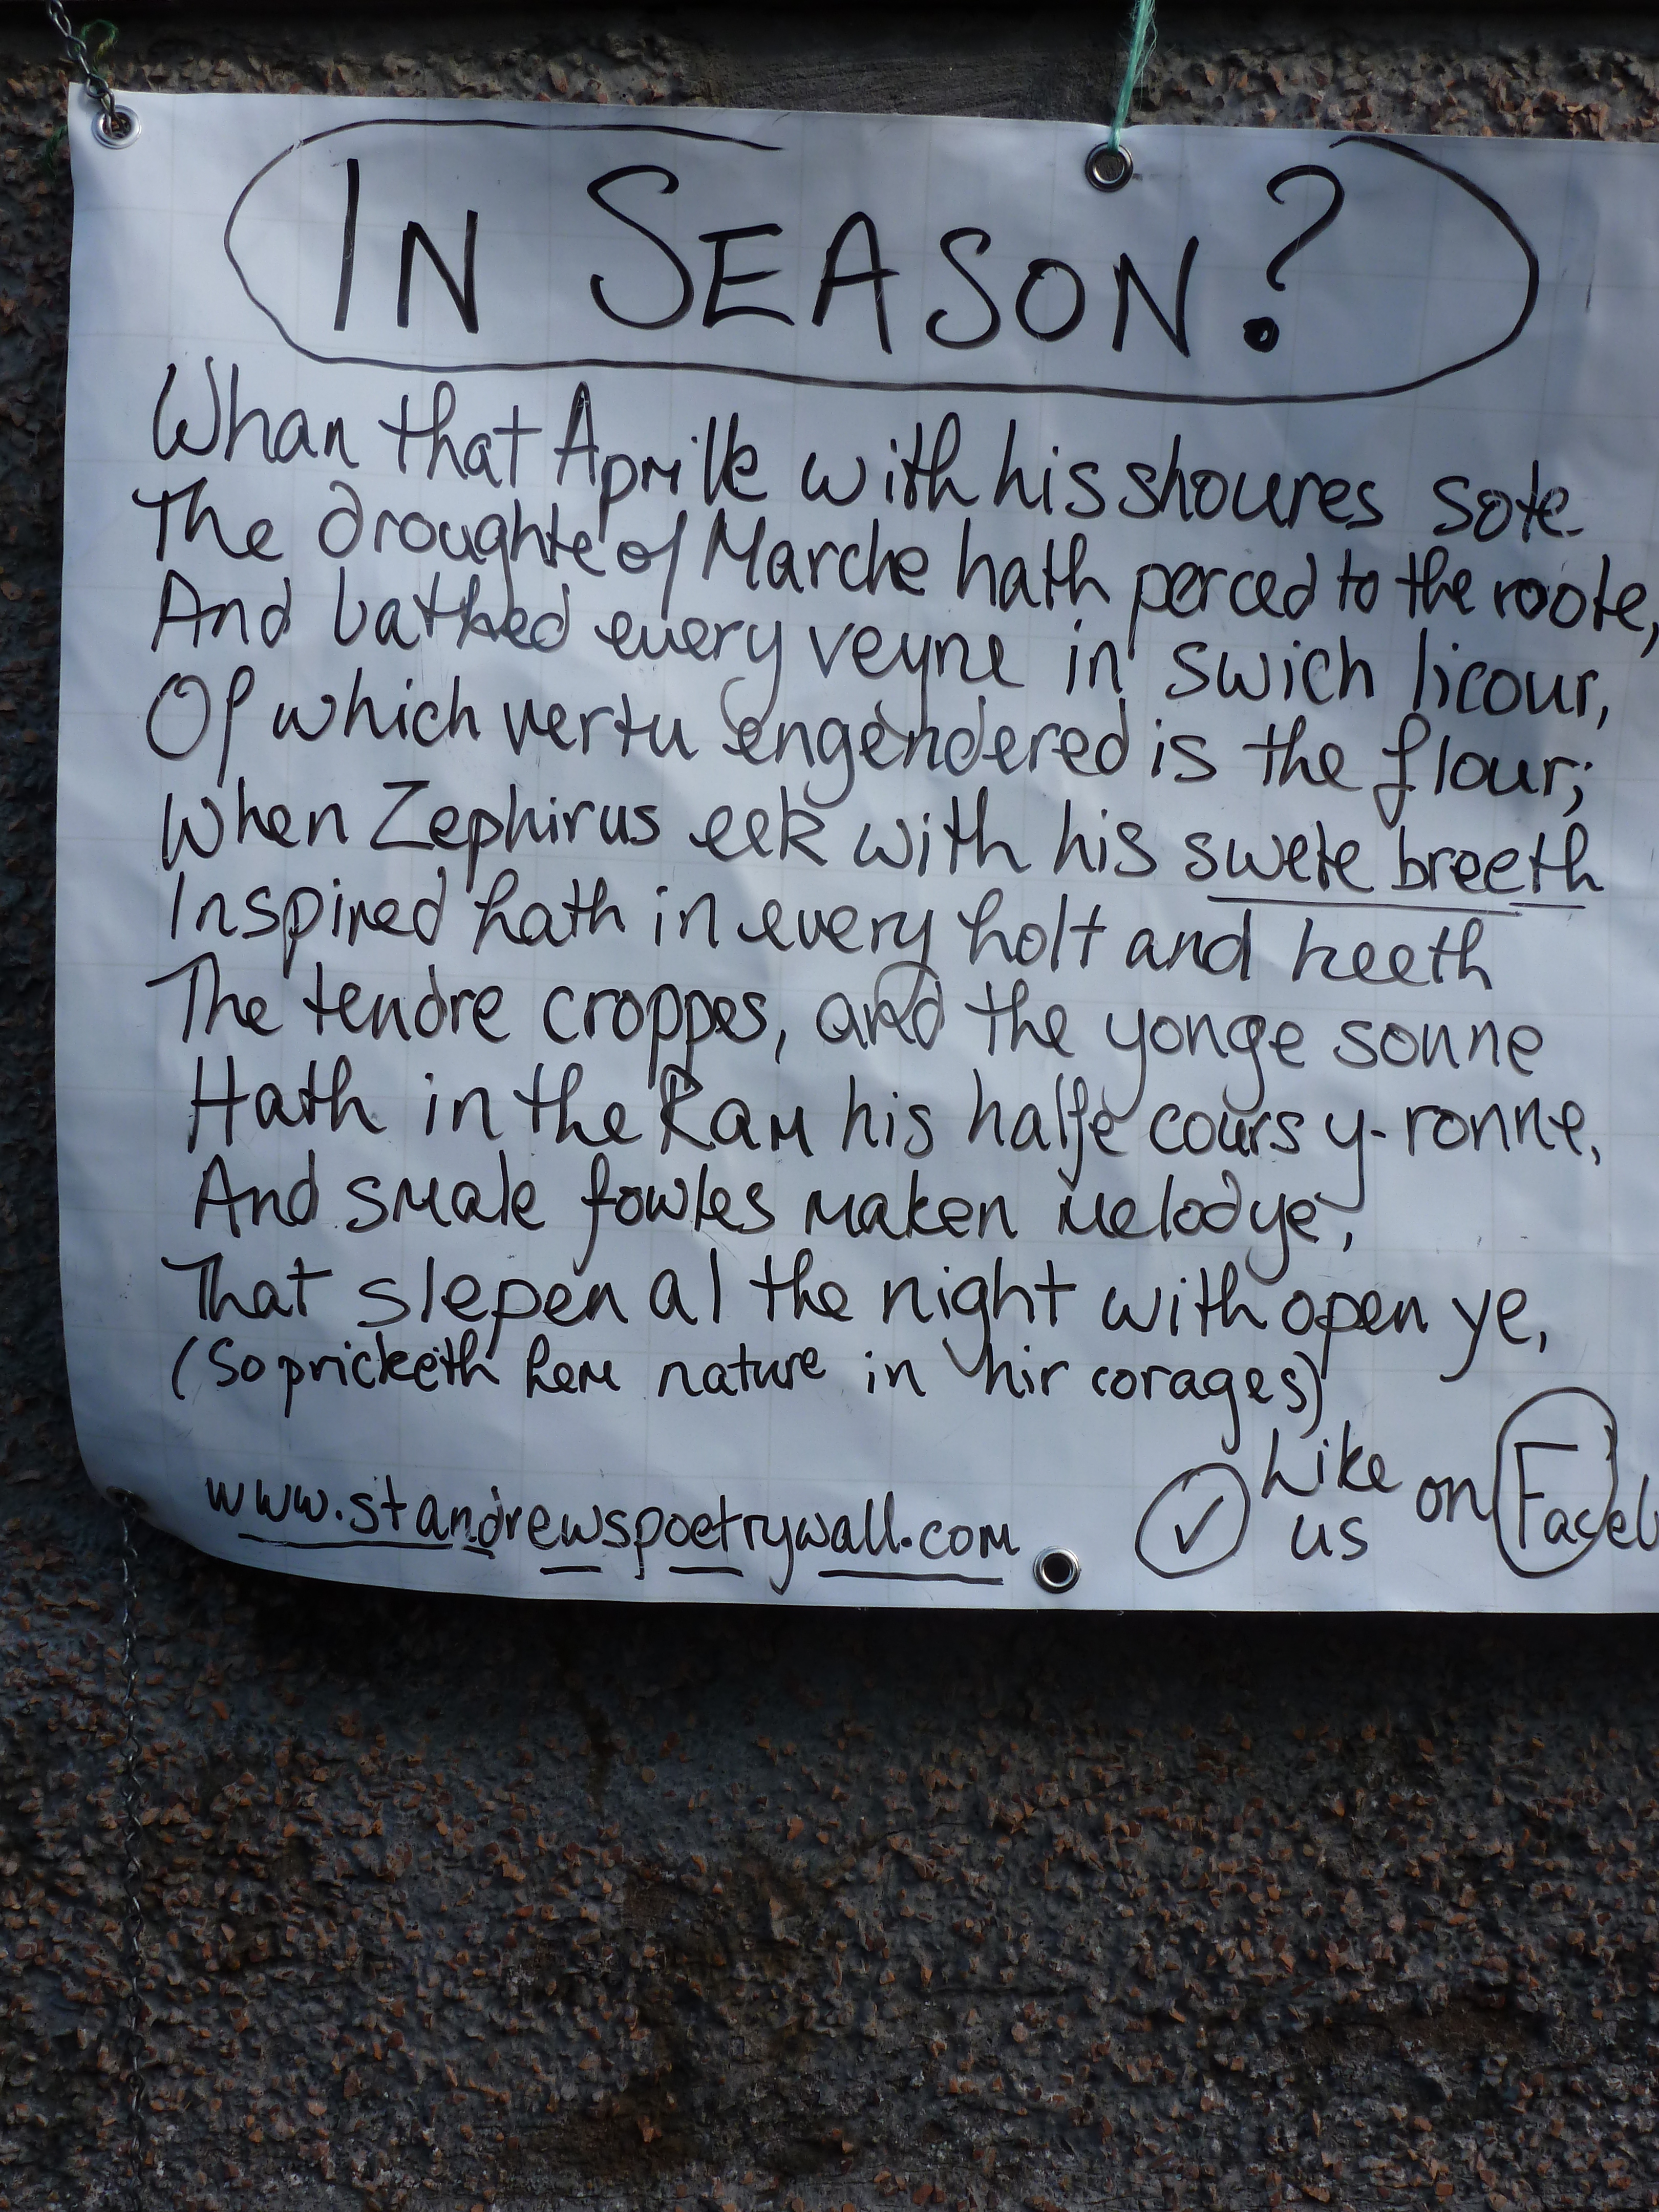 IN SEASON?
Whan that Aprille with his shoures sote
The droughte of Marche hath perced to the roote,
And bathed every veyne in swich licour,
Of which vertu engendered is the flour;
When Zephirus eek with his swete breeth
Inspired hath in every holt and heeth
The tendre croppes, and the yonge sonne
Hath in the Ram his halfe cours y-ronne,
And smale fowles maken melodye,
That slepen al the night with open ye,
(So pricketh hem nature in hir corages)
www.standrewspoetrywall.com
Like us on Faceb